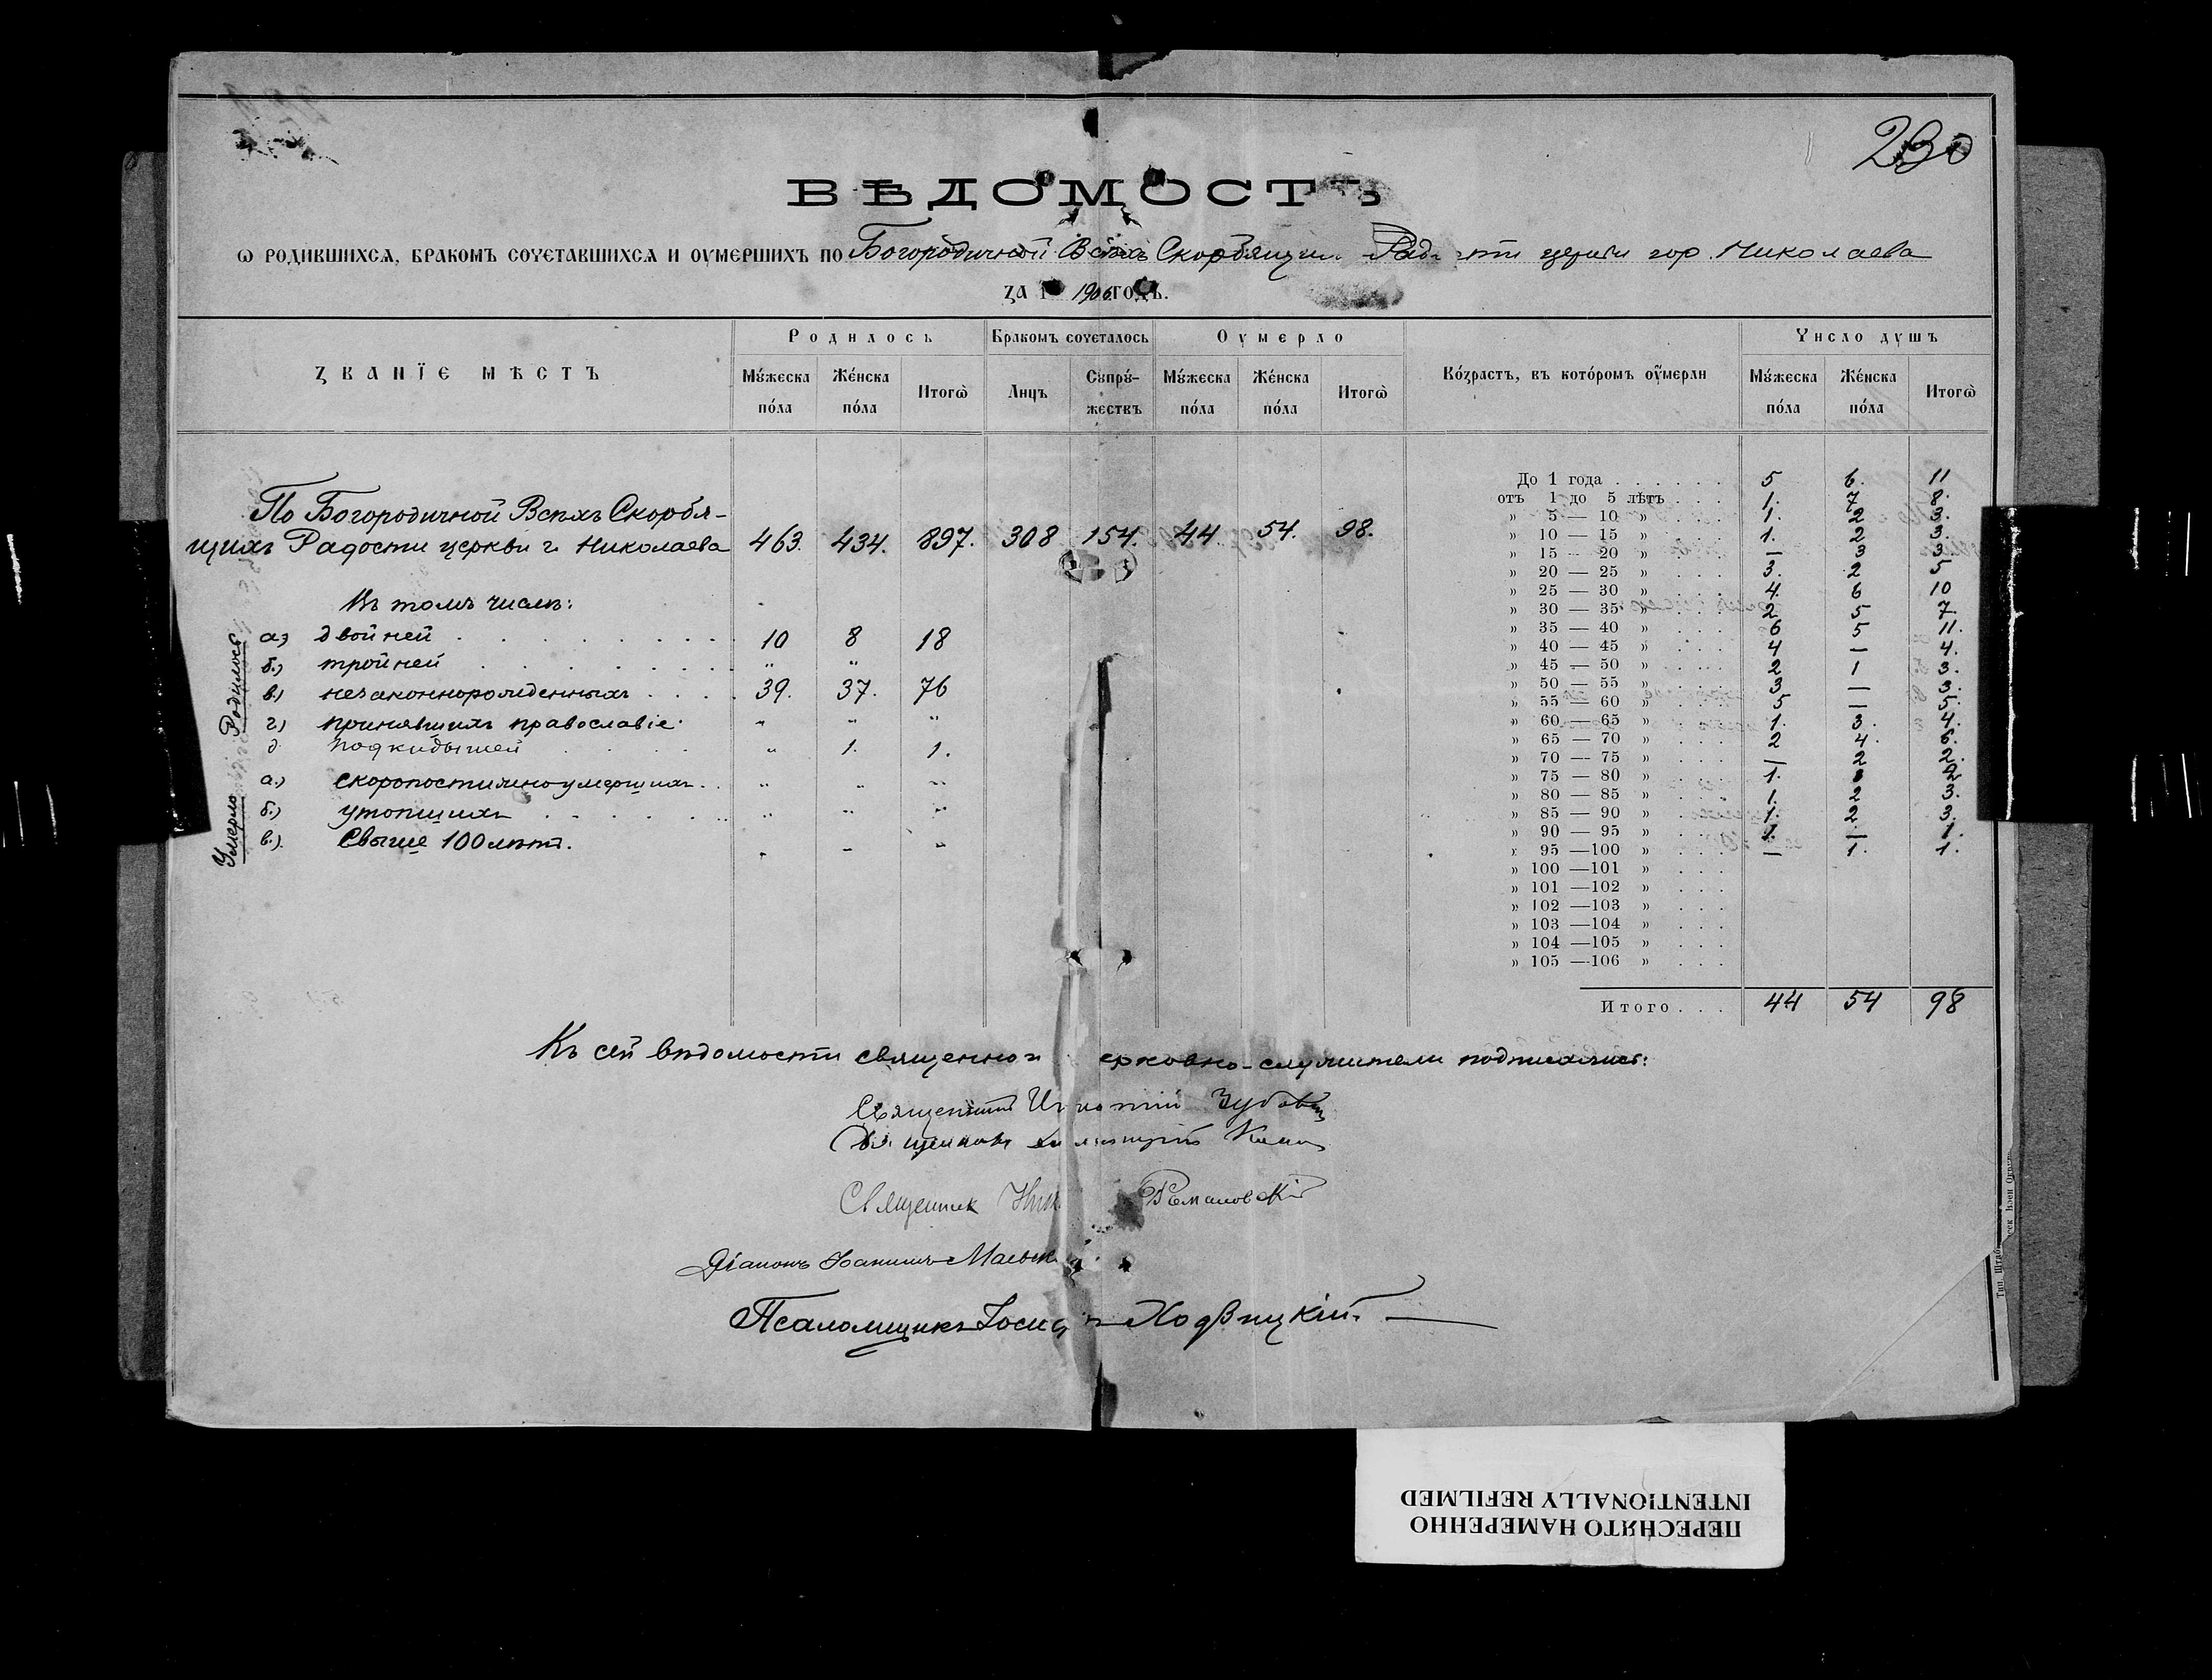 230
ВѢДОМОСТЬ
Ѡ РОДИВШИХСѦ, БРАКОМЪ СОЧЕТАВШИХСѦ И ОУМЕРШИХЪ ПО Богородичной Всѣхъ Скорбящихъ Радости церкви гор. Николаева
ЗА 1906 ГОДЪ.
ЗВАНЇЕ МѢСТЪ
Родилось
Бракомъ сочеталось
Оумерло
Возрастъ, въ кото́ромъ оу҆мерли
Число душъ
Мꙋ́жеска по́ла
Же́нска по́ла
Итогѡ̀
Лицъ
Сꙋпрꙋ́-
жествъ
Мꙋ́жеска по́ла
Же́нска по́ла
Итогѡ̀
Мꙋ́жеска по́ла
Же́нска по́ла
Итогѡ̀
По Богородичной Всѣхъ Скорбя-
щихъ Радости церкви г. Николаева 463. 434. 897. 308 154. 44. 54. 98.
Въ томъ числѣ:
Родилось
а) двойней 10 8 18
б.) тройней " "
в.) незаконнорожденныхъ 39. 37. 76
г) принявшихъ православіе " " "
д подкидышей " 1. 1.
Умерло
а.) скоропостижно умершихъ " " "
б.) утопшихъ " " "
в.) Свыше 100 лѣтъ. " " "
До 1 года 5 6. 11
отъ 1 до 5 лѣтъ 1. 7 8.
» 5 — 10 » 1. 2 3.
» 10 — 15 » 1. 2 3.
» 15 — 20 » — 3 3.
» 20 — 25 » 3. 2 5
» 25 — 30 » 4. 6 10
» 30 — 35 » 2 5 7.
» 35 — 40 » 6 5 11.
» 40 — 45 » 4 — 4.
» 45 — 50 » 2 1 3.
» 50 — 55 » 3 — 3.
» 55 — 60 » 5 — 5.
» 60 — 65 » 1. 3. 4.
» 65 — 70 » 2 4. 6.
» 70 — 75 » — 2 2.
» 75 — 80 » 1. 2
» 80 — 85 » 1. 2 3.
» 85 — 90 » 1. 2 3.
» 90 — 95 » 1. — 1.
» 95 —100 » — 1. 1.
» 100 —101 »
» 101 —102 »
» 102 —103 »
» 103 —104 »
» 104 —105 »
» 105 —106 »
Итого 44 54 98
Къ сей вѣдомости священно ерковно-служители подписались:
Священникъ
Священникъ
Священник Ник Романовскій
Діаконъ
Псаломщикъ Ходвицкій.
Тип. Штаб
ПЕРЕСНЯТО НАМЕРЕННО
INTENTIONALLY REFILMED